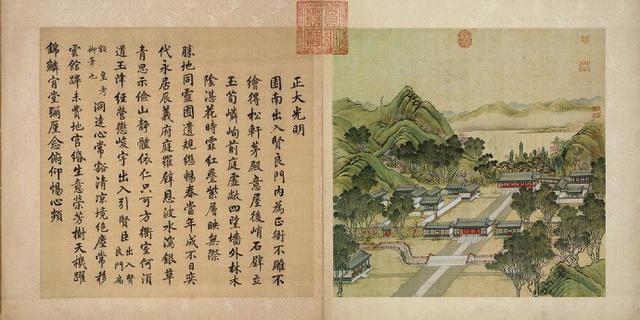 正大光明
園南出入賢良門內為正衙不雕不
繪得松軒茅殿意屋後峭石壁立
玉筍嶙峋前庭虛敞四望墻外林木
陰湛花時霏紅疊紫層映無際
勝地同靈囿遺規繼暢春當年成不日奕
代永居辰義府庭羅壁恩波水瀉銀草
青思示儉山靜體依仁只可方衢室何須
道玉津經營懲峻宇出入引賢臣出入賢良門為
皇考御筆也洞達心常豁清涼境絕塵常移
雲館蹕未費地官緡生意榮芳樹天機躍
錦鱗肯堂彌厪念俯仰惕心頻